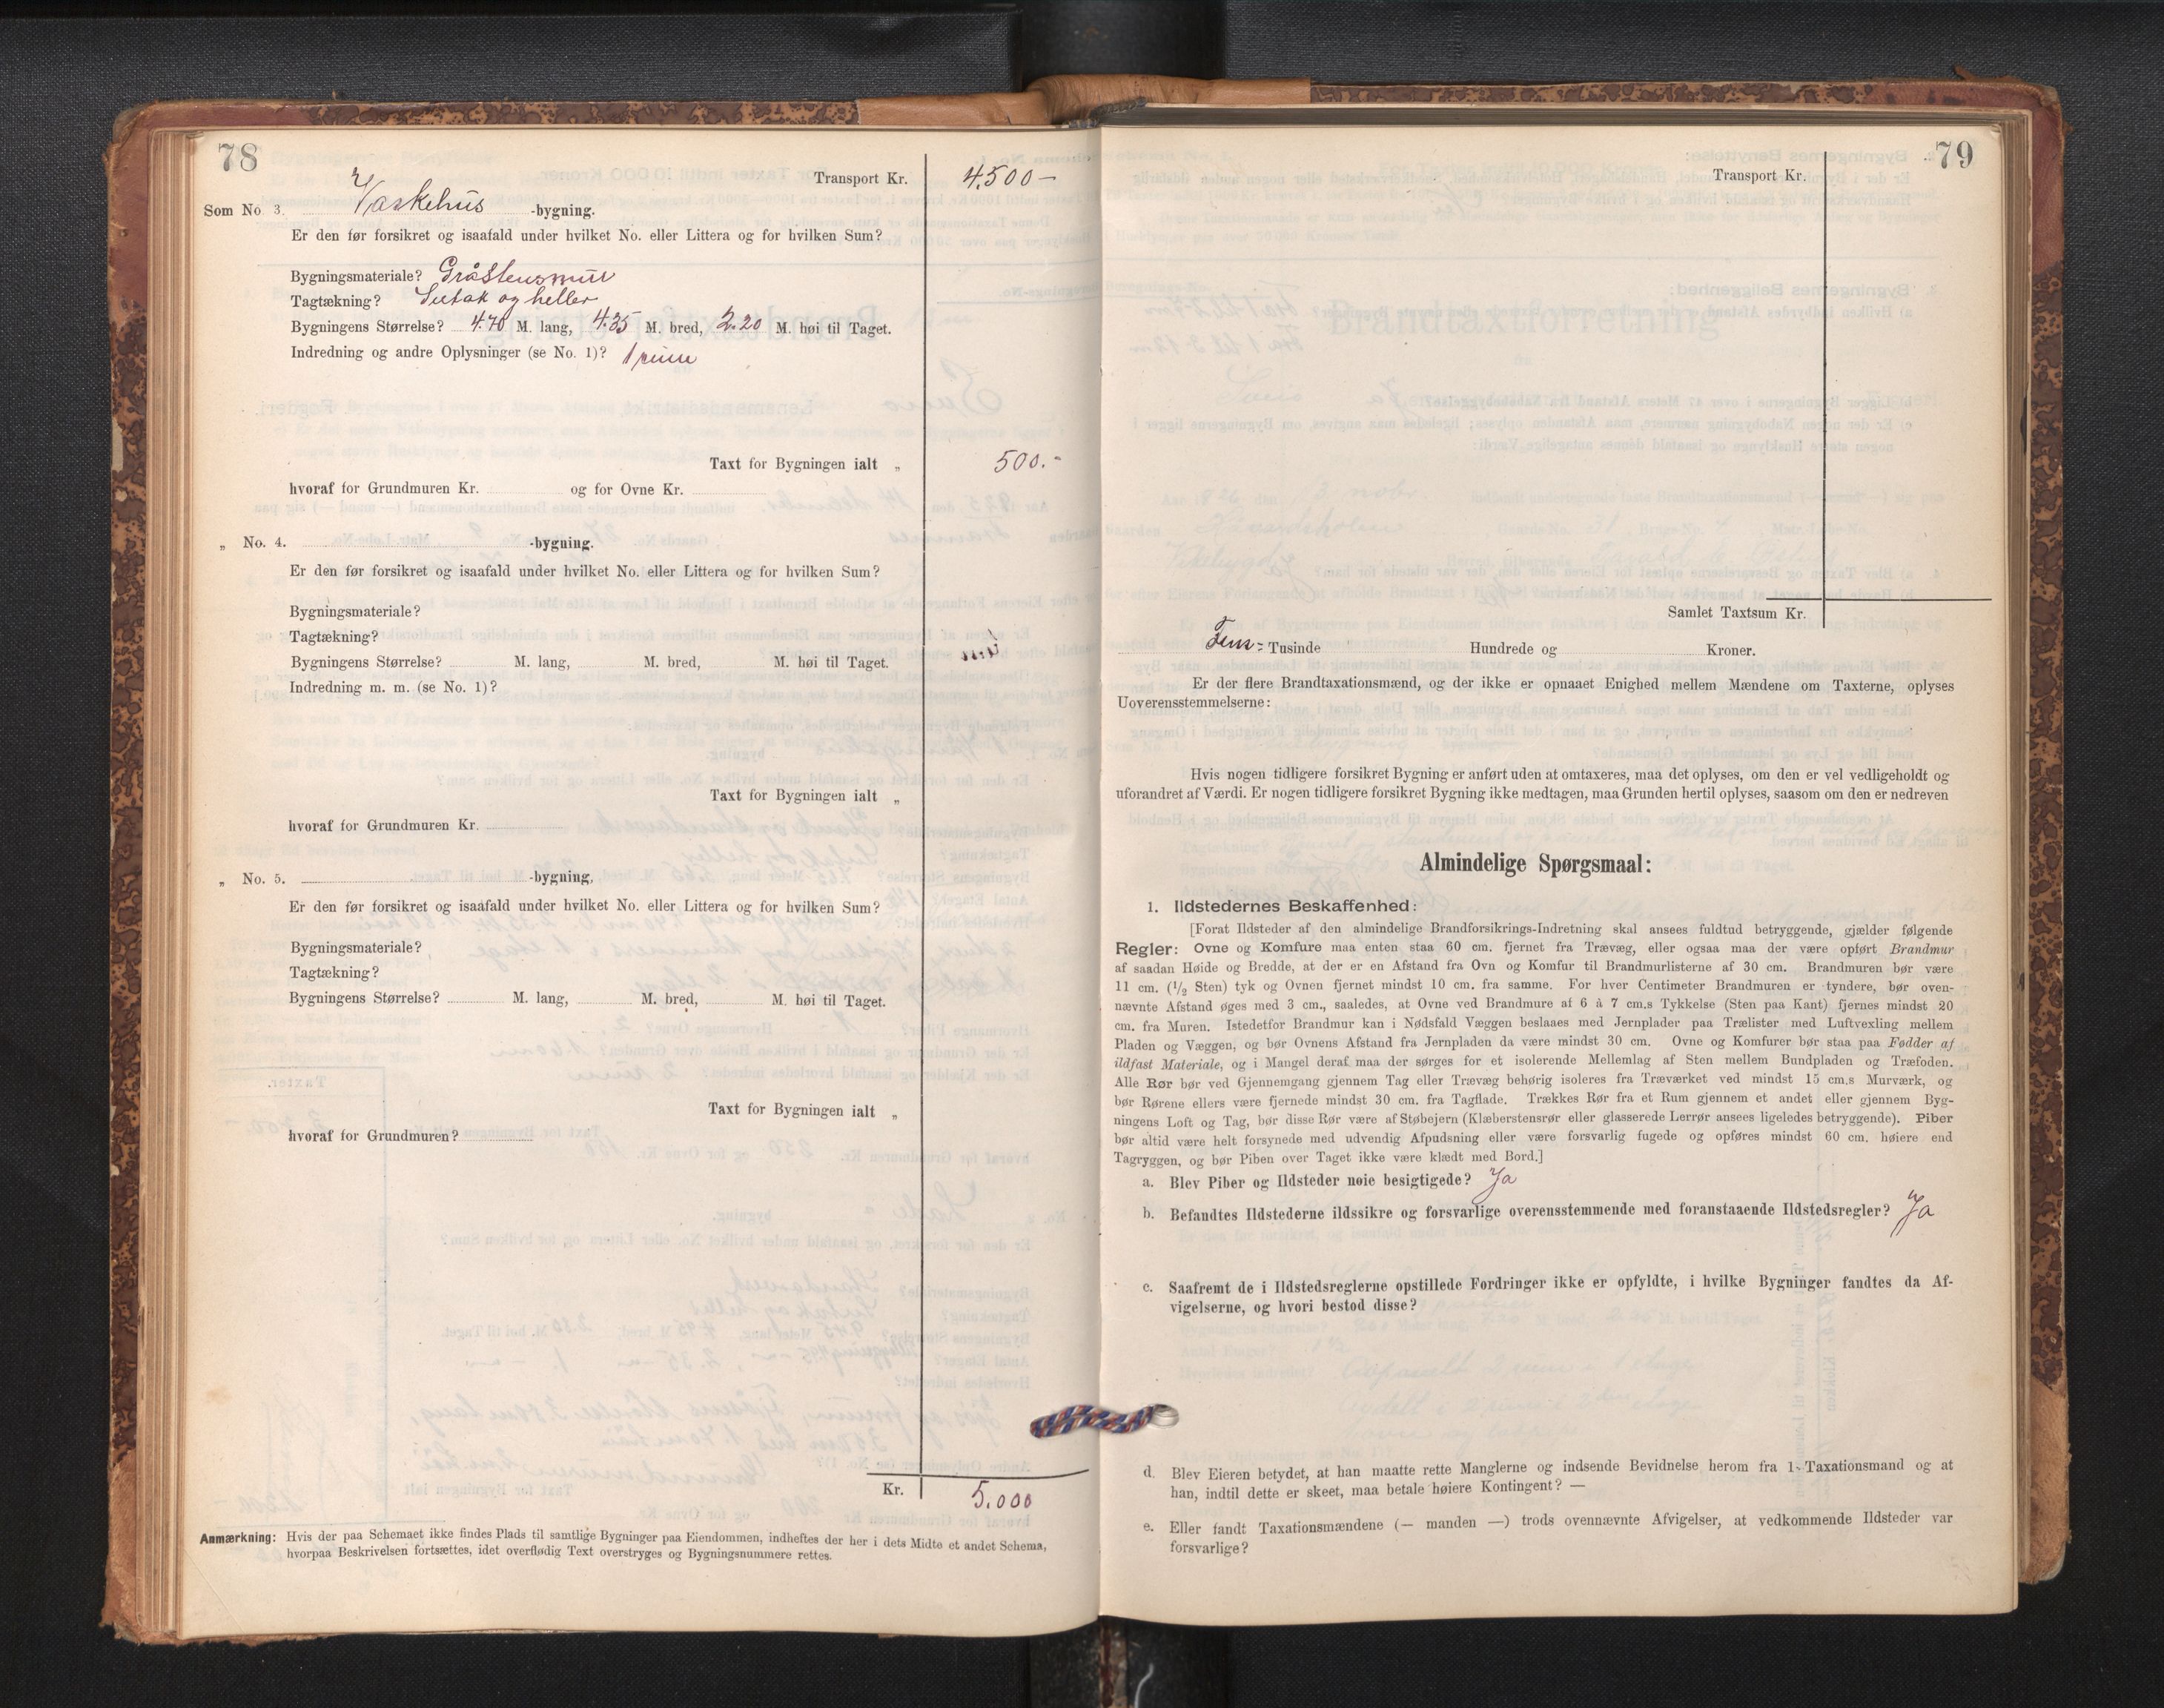 78
Transport Kr. 4.500-
Som No 3. Vaskehus -bygning.
Er den før forsikret og isaafald under hvilket No. eller Littera og for hvilken Sum?
Bygningsmateriale? Gråstensmur
Tagtækning? Sutak og heller
Bygningens Størrelse? 4.70 M. lang, 4.35 M. bred, 2.20 M. høi til Taget.
Indredning og andre Oplysninger (se No. 1)? 1 rum
Taxt for Bygningen ialt „ 500.-
hvoraf for Grundmuren Kr. og for Ovne Kr.
„ No. 4. -bygning.
Er den før forsikret og isaafald under hvilket No. eller Littera og for hvilken Sum?
Bygningsmateriale?
Tagtækning?
Bygningens Størrelse? M. lang, M. bred, M. høi til Taget.
Indredning m. m. (se No. 1)?
Taxt for Bygningen ialt „
hvoraf for Grundmuren Kr.
„ No. 5. -bygning.
Er den før forsikret og isaafald under hvilket No. eller Littera og for hvilken Sum?
Bygningsmateriale?
Tagtækning?
Bygningens Størrelse? M. lang, M. bred, M. høi til Taget.
Taxt for Bygningen ialt „
hvoraf for Grundmuren?
Kr. 5.000
Anmærkning: Hvis der paa Schemaet ikke findes Plads til samtlige Bygninger paa Eiendommen, indheftes der her i dets Midte et andet Schema,
hvorpaa Beskrivelsen fortsættes, idet overflødig Text overstryges og Bygningsnummere rettes.
79
Transport Kr.
Samlet Taxtsum Kr.
Fem= Tusinde Hundrede og Kroner.
Er der flere Brandtaxationsmænd, og der ikke er opnaaet Enighed mellem Mændene om Taxterne, oplyses
Uoverensstemmelserne:
Hvis nogen tidligere forsikret Bygning er anført uden at omtaxeres, maa det oplyses, om den er vel vedligeholdt og
uforandret af Værdi. Er nogen tidligere forsikret Bygning ikke medtagen, maa Grunden hertil oplyses, saasom om den er nedreven
Almindelige Spørgsmaal:
1. Ildstedernes Beskaffenhed:
[Forat Ildsteder af den almindelige Brandforsikrings-Indretning skal ansees fuldtud betryggende, gjælder følgende
Regler: Ovne og Komfure maa enten staa 60 cm. fjernet fra Trævæg, eller ogsaa maa der være opført Brandmur
af saadan Høide og Bredde, at der er en Afstand fra Ovn og Komfur til Brandmurlisterne af 30 cm. Brandmuren bør være
11 cm. (1/2 Sten) tyk og Ovnen fjernet mindst 10 cm. fra samme. For hver Centimeter Brandmuren er tyndere, bør oven-
nævnte Afstand øges med 3 cm., saaledes, at Ovne ved Brandmure af 6 à 7 cm.s Tykkelse (Sten paa Kant) fjernes mindst 20
cm. fra Muren. Istedetfor Brandmur kan i Nødsfald Væggen beslaaes med Jernplader paa Trælister med Luftvexling mellem
Pladen og Væggen, og bør Ovnens Afstand fra Jernpladen da være mindst 30 cm. Ovne og Komfurer bør staa paa Fødder af
ildfast Materiale, og i Mangel deraf maa der sørges for et isolerende Mellemlag af Sten mellem Bundpladen og Træfoden.
Alle Rør bør ved Gjennemgang gjennem Tag eller Trævæg behørig isoleres fra Træværket ved mindst 15 cm.s Murværk, og
bør Rørene ellers være fjernede mindst 30 cm. fra Tagflade. Trækkes Rør fra et Rum gjennem et andet eller gjennem Byg-
ningens Loft og Tag, bør disse Rør være af Støbejern (Klæberstensrør eller glasserede Lerrør ansees ligeledes betryggende). Piber
bør altid være helt forsynede med udvendig Afpudsning eller være forsvarlig fugede og opføres mindst 60 cm. høiere end
Tagryggen, og bør Piben over Taget ikke være klædt med Bord.]
a. Blev Piber og Ildsteder nøie besigtigede? Ja
b. Befandtes Ildstederne ildssikre og forsvarlige overensstemmende med foranstaaende Ildstedsregler? Ja
c. Saafremt de i Ildstedsreglerne opstillede Fordringer ikke er opfyldte, i hvilke Bygninger fandtes da Af-
vigelserne, og hvori bestod disse?
d. Blev Eieren betydet, at han maatte rette Manglerne og indsende Bevidnelse herom fra 1 Taxationsmand og at
han, indtil dette er skeet, maa betale høiere Kontingent? —
e. Eller fandt Taxationsmændene (— manden —) trods ovennævnte Afvigelser, at vedkommende Ildsteder var
forsvarlige?